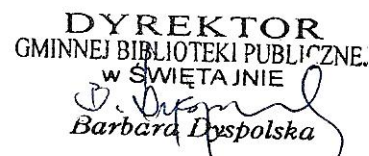 DYREKTOR
GMINNEJ BIBLIOTEKI PUBLICZNEJ
w ŚWIĘTAJNIE
Barbara Dyspolska